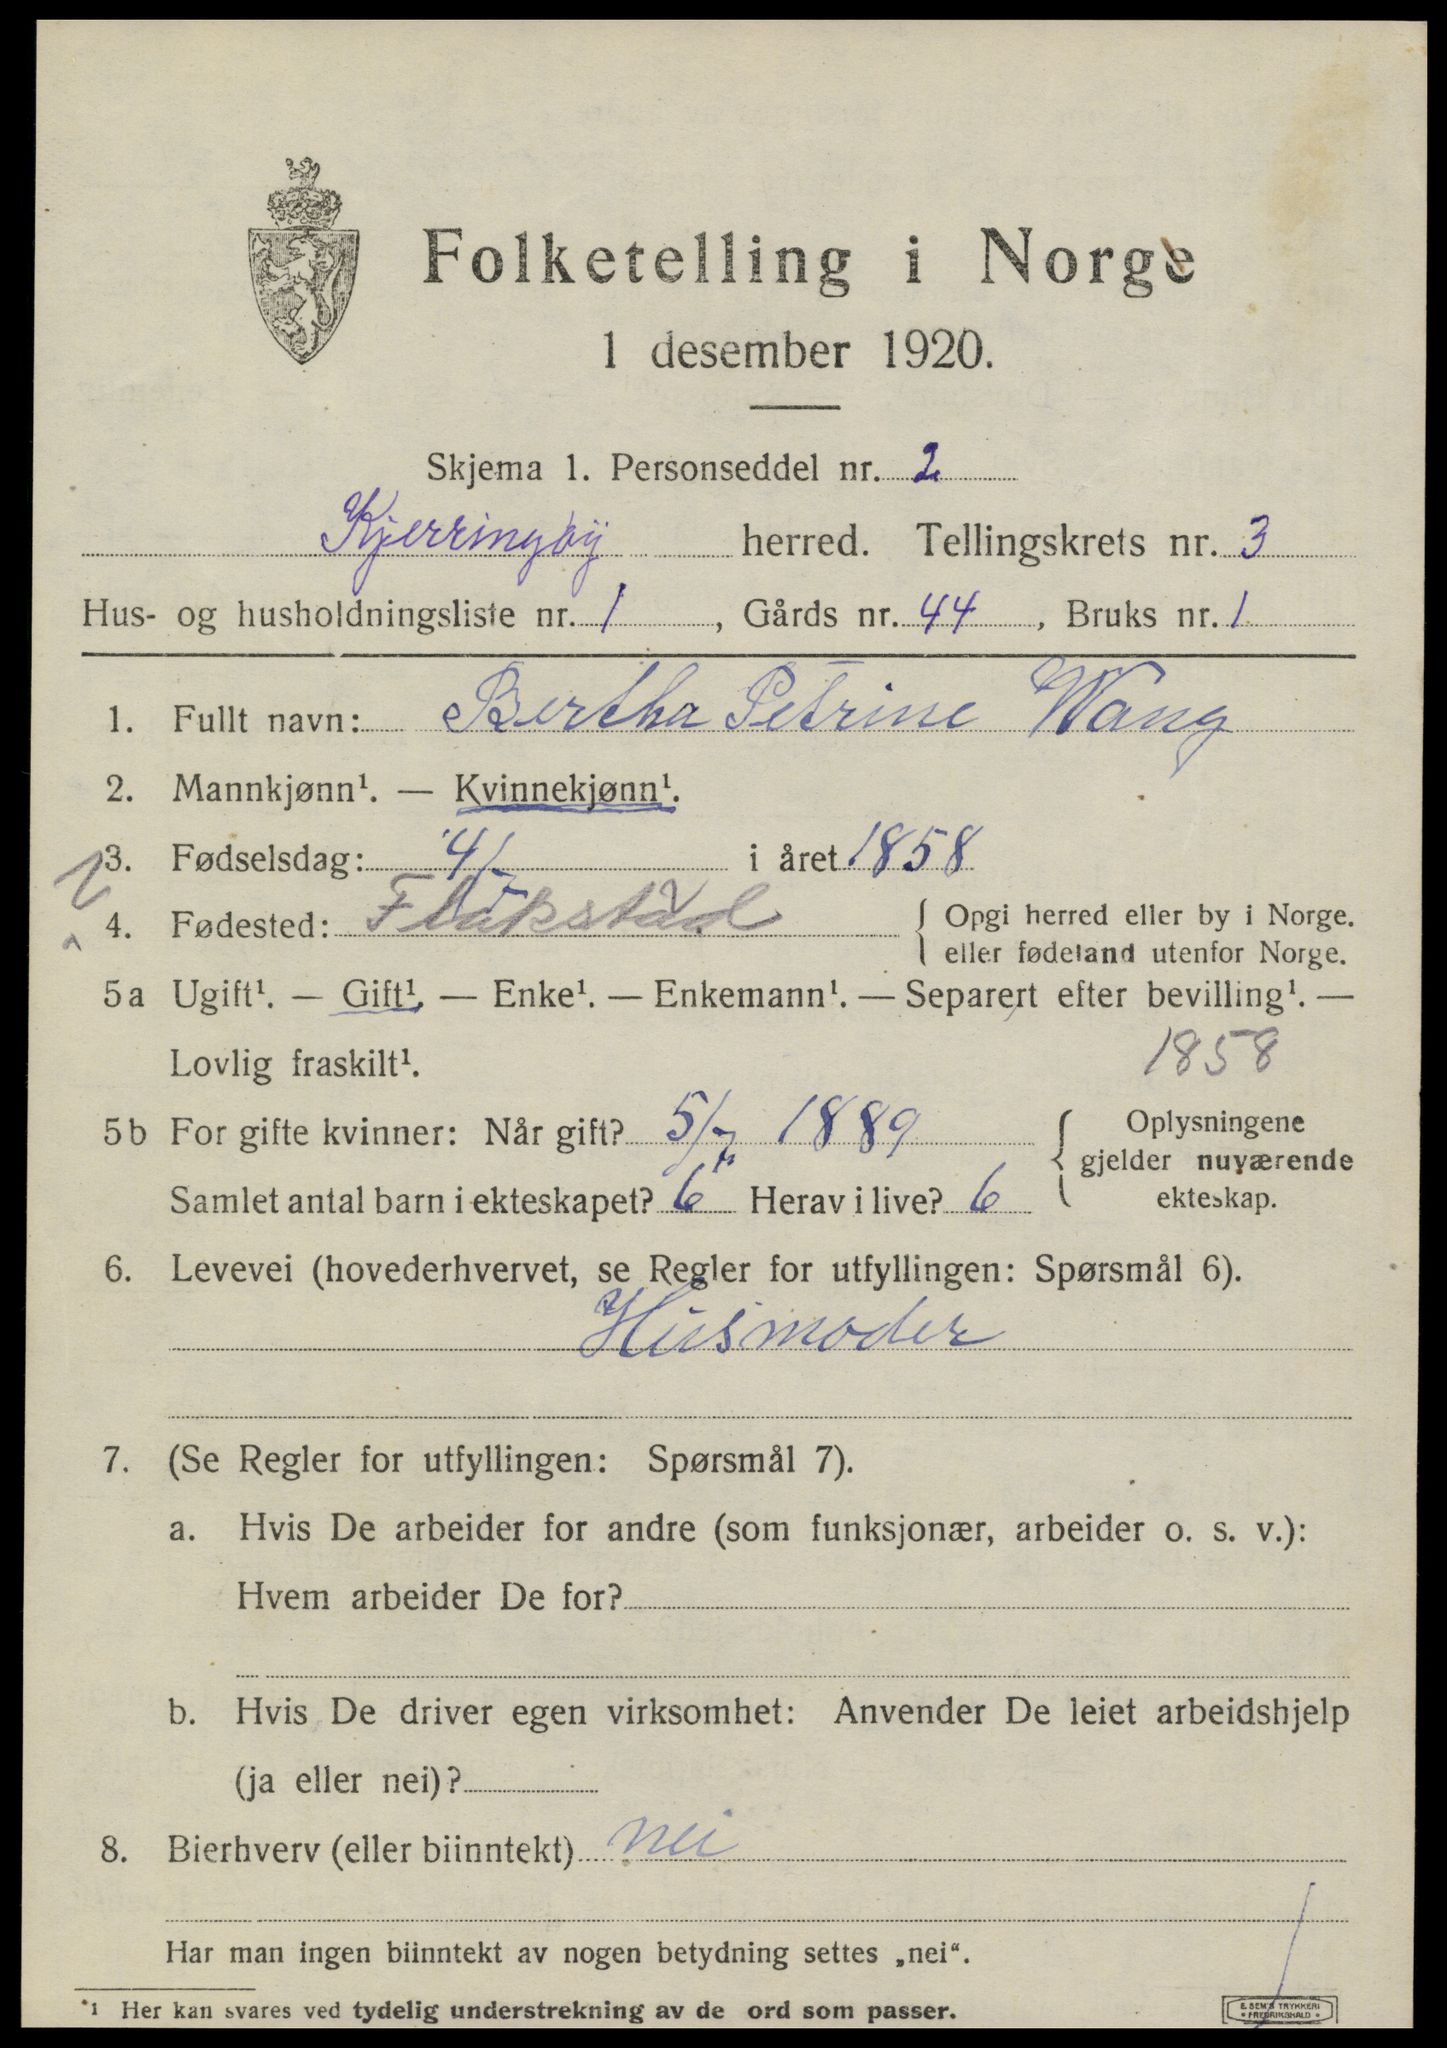 Folketelling i Norge
1 desember 1920.
Skjema 1. Personseddel nr. 2
Kjerringøy herred. Tellingskrets nr. 3
Hus- og husholdningsliste nr. 1, Gårds nr. 44, Bruks nr. 1
1. Fullt navn: Bertha Petrine Wang
2. Mannkjønn¹. — Kvinnekjønn¹.
3. Fødselsdag: 4/5 i året 1858
4. Fødested: Flakstad { Opgi herred eller by i Norge.
eller fødeland utenfor Norge.
5a Ugift¹. — Gift¹. — Enke¹. — Enkemann¹. — Separert efter bevilling¹. —
Lovlig fraskilt¹. 1858
5b For gifte kvinner: Når gift? 5/7 1889 { Oplysningene
gjelder nuværende
Samlet antal barn i ekteskapet? 6 Herav i live? 6 ekteskap.
6. Levevei (hovederhvervet, se Regler for utfyllingen: Spørsmål 6).
Husmoder
7. (Se Regler for utfyllingen: Spørsmål 7).
a. Hvis De arbeider for andre (som funksjonær, arbeider o. s. v.):
Hvem arbeider De for?
b. Hvis De driver egen virksomhet: Anvender De leiet arbeidshjelp
(ja eller nei)?
8. Bierhverv (eller biinntekt) nei
Har man ingen biinntekt av nogen betydning settes „nei“.
*¹ Her kan svares ved tydelig understrekning av de ord som passer.
E. SEM'S TRYKKERI
• FREDRIKSHALD •